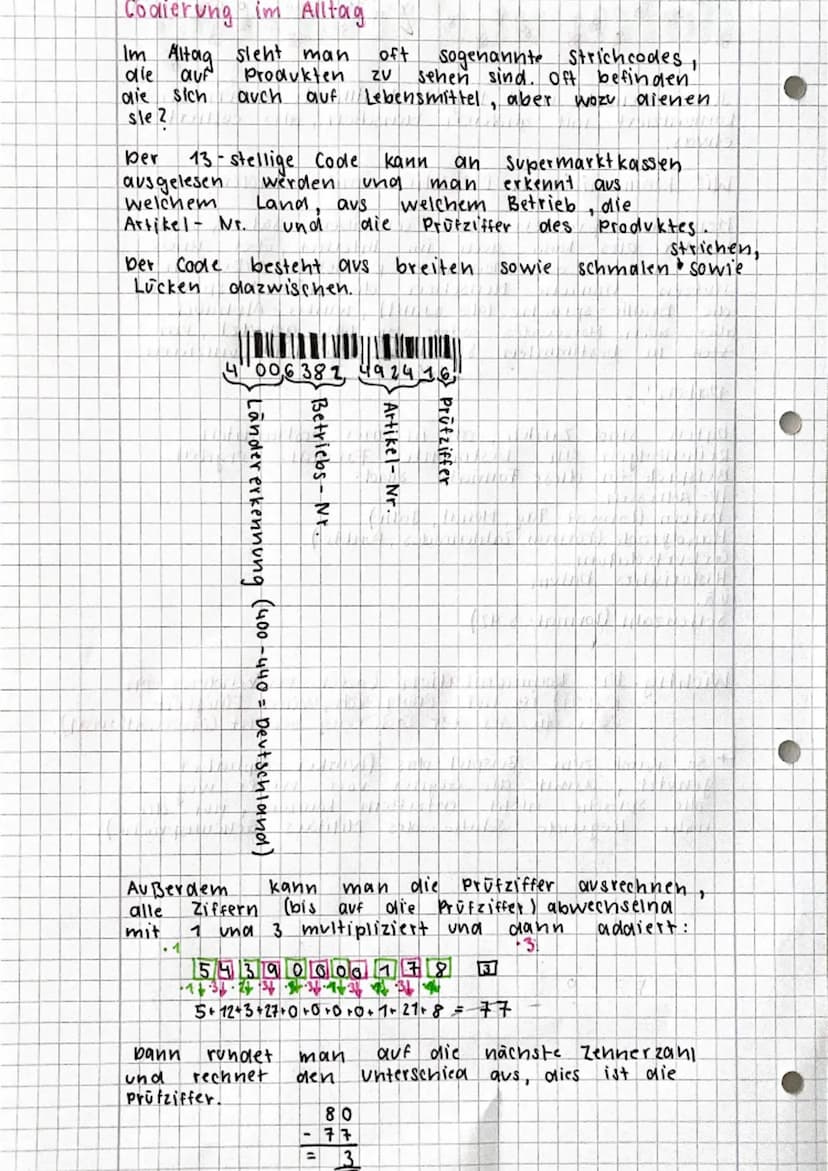 Codierung im Alltag
Im Alltag sieht man oft sogenannte Strichcodes,
die auf Produkten zu sehen sind. Oft befinden
die sich auch auf Lebensmittel, aber wozu dienen
sie?
Der 13-stellige Code kann an Supermarktkassen
ausgelesen werden und man erkennt aus
welchem Land, aus welchem Betrieb, die
Artikel-Nr. und die Prüfziffer des Produktes.
strichen,
Der Code besteht aus breiten sowie schmalen sowie
Lücken dazwischen.
4 006382 492416
Ländererkennung (400-440 = Deutschland)
Betriebs-Nr.
Artikel-Nr.
Prüfziffer
Außerdem kann man die Prüfziffer ausrechnen,
alle Ziffern (bis auf die Prüfziffer) abwechselnd
mit 1 und 3 multipliziert und dann addiert:
·1 ·3
5 4 3 9 0 0 0 0 1 7 8 3
5+12+3+27+0+0+0+0+1+21+8 = 77
Dann rundet man auf die nächste Zehnerzahl
und rechnet den Unterschied aus, dies ist die
Prüfziffer.
80
- 77
= 3